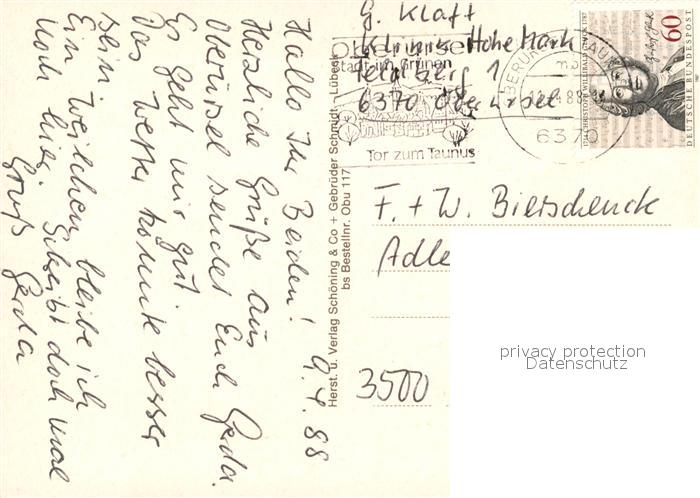 Hallo Ihr Beiden! 9.4.88
Herzliche Grüße aus
Oberursel sendet Euch Gerda.
Es geht mir gut.
Das Wetter könnte besser
sein. Ein Weilchen bleibe ich
noch hier. Schreibt doch mal
Gruß Gerda
G. Klaft
Klinik Hohe Mark
Feldberg 1
6370 Oberursel
Oberursel
Stadt im Grünen
Tor zum Taunus
6370
60
DEUTSCHE BUNDESPOST
1714 CHRISTOPH WILLIBALD GLUCK 1787
F. + W. Bierschenck
Adle
3500
Herst. u. Verlag Schöning & Co + Gebrüder Schmidt - Lübeck
bs Bestellnr. Obu 117
privacy protection
Datenschutz